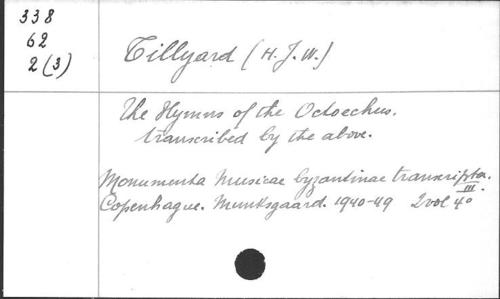 338
62
2 (3)
Tillyard (H. J. W.)
The Hymns of the Octoechus.
transcribed by the above.
Monumenta Musicae byzantinae transcripta.
III.
Copenhague. Munksgaard. 1940-49 2 vol 4°